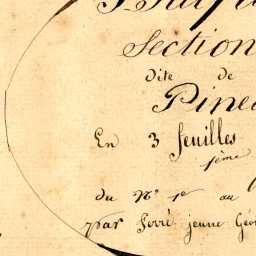 Section
dite de
Pine
En 3 feuilles
1ème
du Nº 1er au
par Ferré jeune Géo